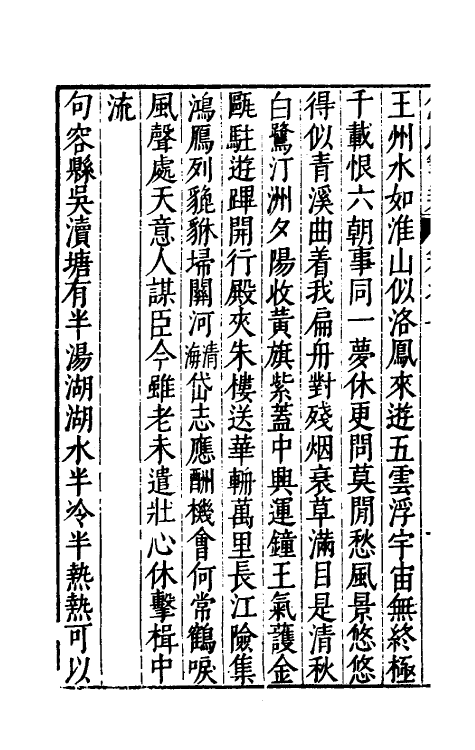 王州水如淮山似洛鳳來遊五雲浮宇宙無終極
千載恨六朝事同一夢休更問莫閒愁風景悠悠
得似青溪曲着我扁舟對殘烟衰草滿目是清秋
白鷺汀洲夕陽收黃旗紫蓋中興運鐘王氣護金
甌駐遊蹕開行殿夾朱樓送華輈萬里長江險集
鴻鴈列貔貅埽關河清海岱志應酬機會何常鶴唳
風聲處天意人謀臣今雖老未遣壯心休擊楫中
流
句容縣吳瀆塘有半湯湖湖水半冷半熱熱可以